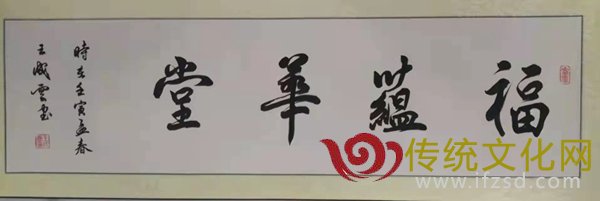 福蘊華堂
時在壬寅孟春
王成雲書
传统文化网
www.ifzsd.com